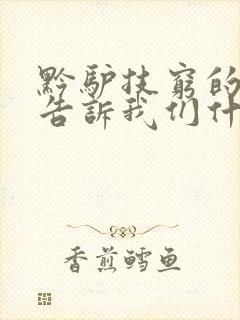 黔驴技穷的
告訴我们什
香煎鳕鱼